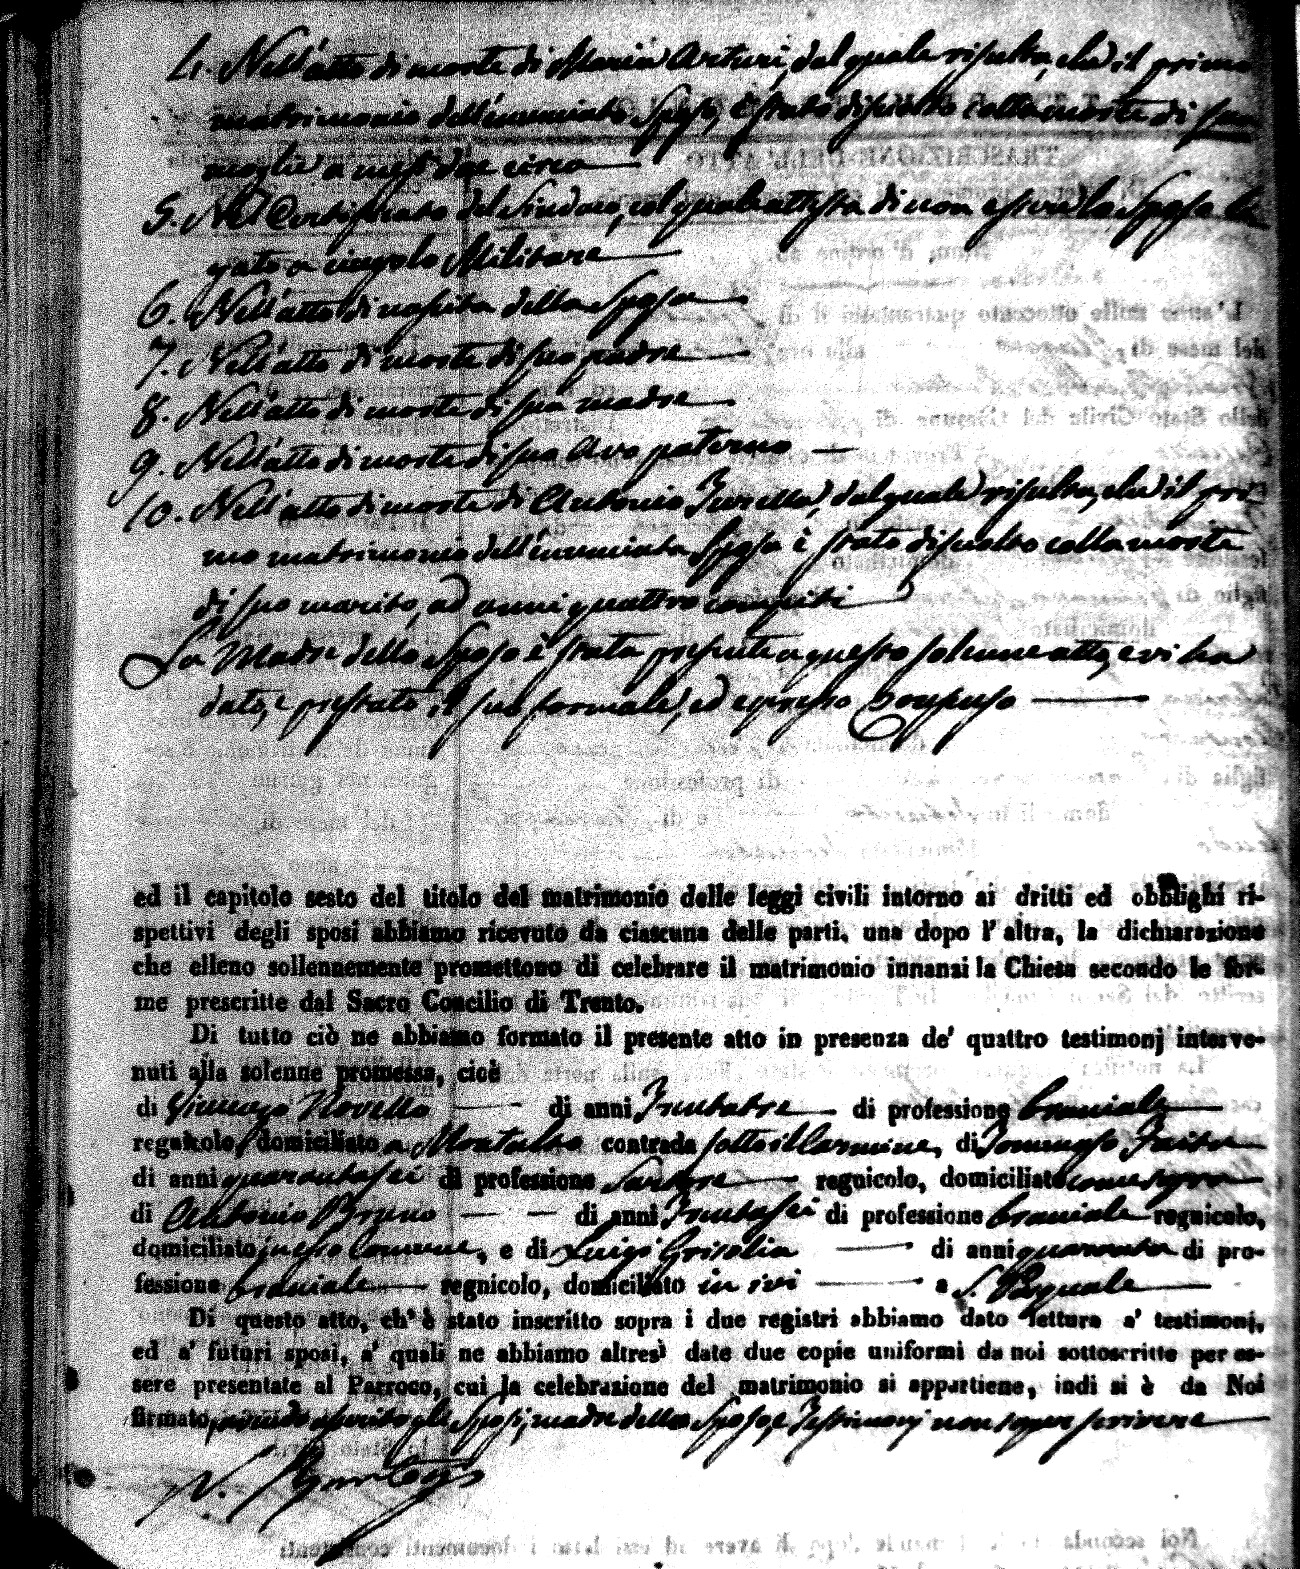 4. Nell'atto di morte di Maria Arturi, dal quale risulta, che il primo
matrimonio dell'enunciato Sposo, è stato disciolto colla morte di sua
moglie a mesi due circa
5. Nel Certificato del Sindaco, col quale attesta di non essere lo Sposo le
gato a cingolo Militare
6. Nell'atto di nascita della Sposa
7. Nell'atto di morte di suo padre
8. Nell'atto di morte di sua madre
9. Nell'atto di morte di suo Avo paterno
10. Nell'atto di morte di Antonio, dal quale risulta, che il pri-
mo matrimonio dell'enunciata Sposa è stato disciolto colla morte
di suo marito, ad anni quattro compiti
La Madre dello Sposo è stata presente a questo solenne atto, e vi ha
dato, e prestato il suo formale, ed espresso Consenso
ed il capitolo sesto del titolo del matrimonio delle leggi civili intorno ai dritti ed obblighi ri-
spettivi degli sposi abbiamo ricevuto da ciascuna delle parti, una dopo l'altra, la dichiarazione
che elleno sollennemente promettono di celebrare il matrimonio innanzi la Chiesa secondo le for-
me prescritte dal Sacro Concilio di Trento.
Di tutto ciò ne abbiamo formato il presente atto in presenza de' quattro testimonj interve-
nuti alla solenne promessa, cioè
di Vincenzo Novello di anni Trentatre di professione braciale
regnicolo, domiciliato a Montalto contrada sotto il Carmine, di Tommaso
di anni quarantasei di professione Sartore regnicolo, domiciliato come sopra
di Antonio Bruno di anni Trentasei di professione braciale regnicolo,
domiciliato in esso Comune, e di Luigi Grisolia di anni quaranta di pro-
fessione braciale regnicolo, domiciliato in ivi a S. Pasquale
Di questo atto, ch' è stato inscritto sopra i due registri abbiamo dato lettura a' testimonj,
ed a' futuri sposi, a' quali ne abbiamo altresì date due copie uniformi da noi sottoscritte per es-
sere presentate al Parroco, cui la celebrazione del matrimonio si appartiene, indi si è da Noi
firmato, avendo asserito gli Sposi, madre dello Sposo, e Testimonj non saper scrivere